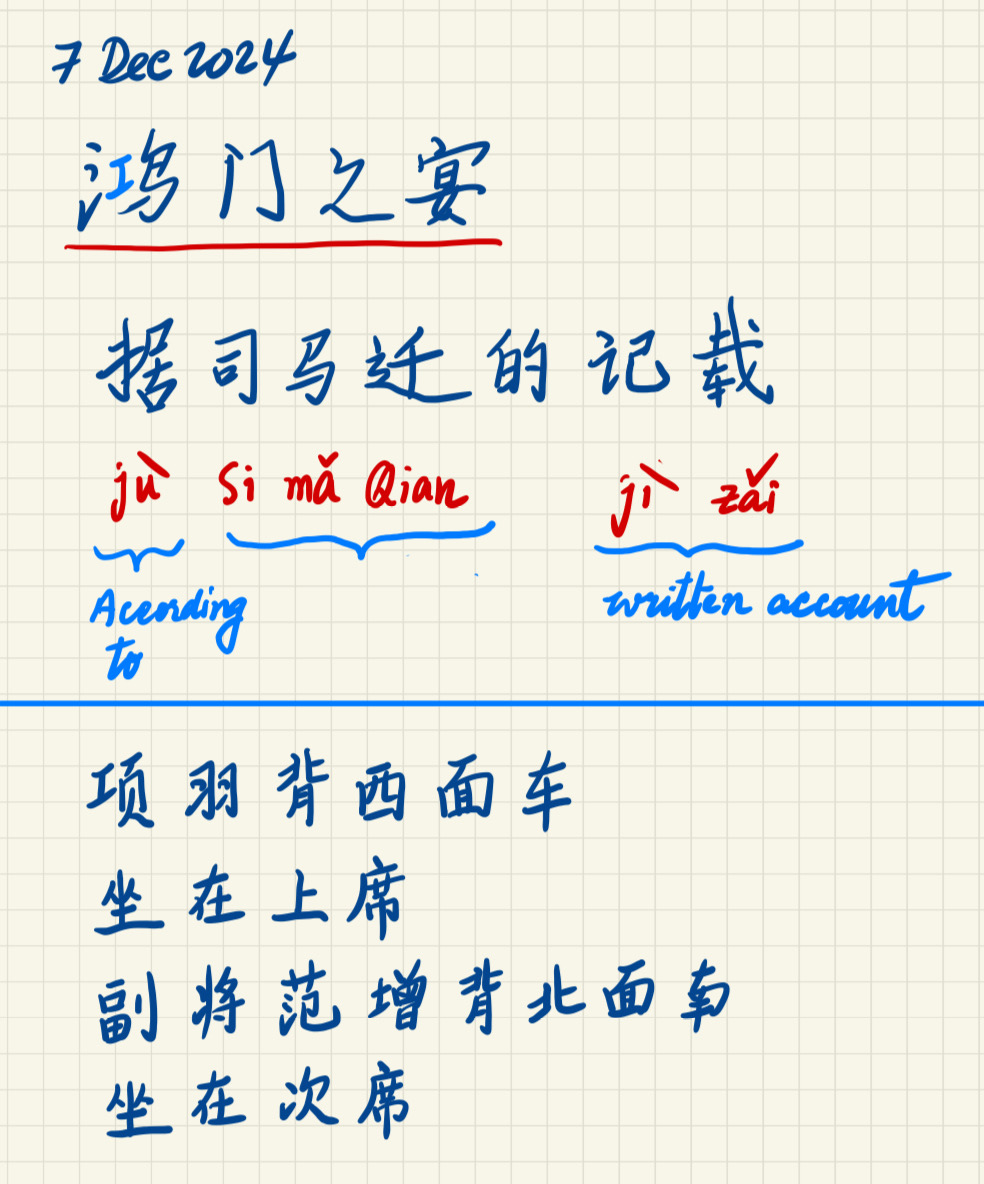 7 Dec 2024
鸿门之宴
据司马迁的记载
jù Si mǎ Qian jì zǎi
Acending to
written account
项羽背西面车
坐在上席
副将范增背北面南
坐在次席